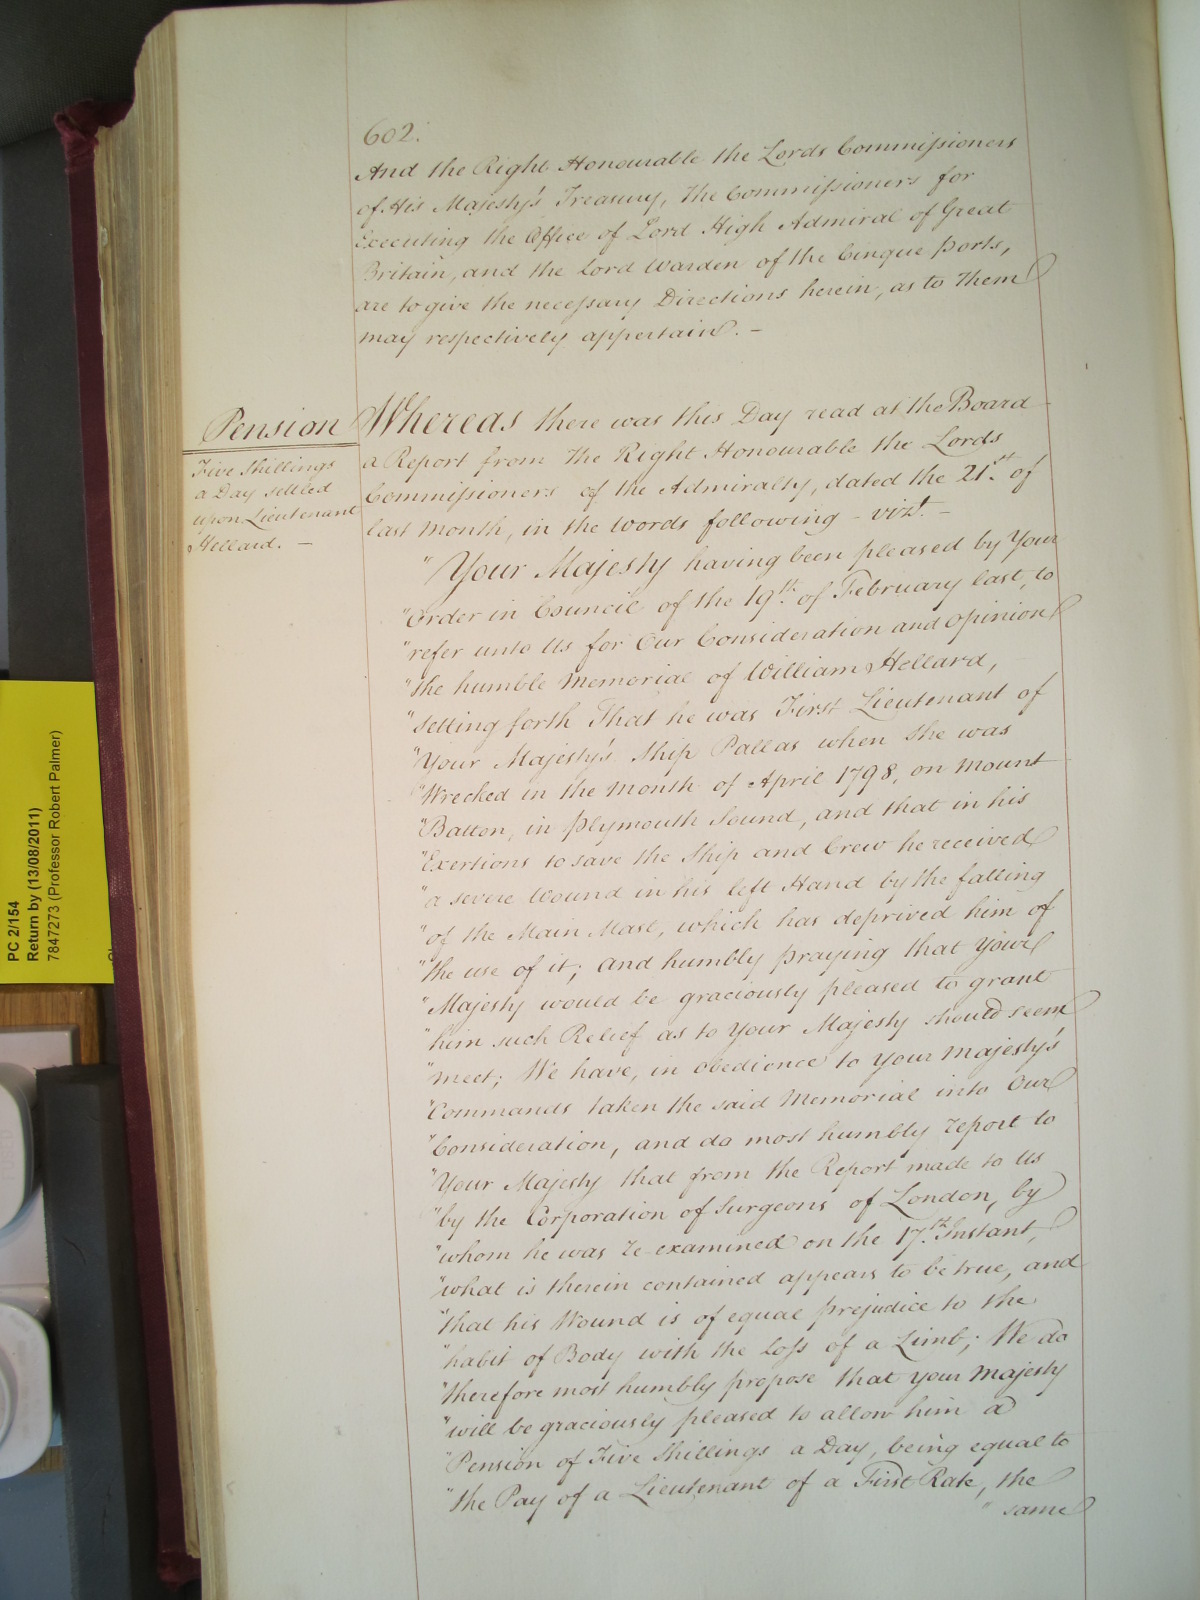 602.
And the Right Honourable the Lords Commissioners
of His Majesty's Treasury, The Commissioners for
Executing the Office of Lord High Admiral of Great
Britain, and the Lord Warden of the Cinque Ports,
are to give the necessary Directions herein, as to Them
may respectively appertain. -
Pension
Five Shillings
a Day settled
upon Lieutenant
Hellard. -
Whereas there was this Day read at the Board
a Report from The Right Honourable the Lords
Commissioners of the Admiralty, dated the 21.st of
last Month, in the Words following - vizt. -
"Your Majesty having been pleased by Your
"Order in Council of the 19th. of February last, to
"refer unto Us for Our Consideration and Opinion
"the humble Memorial of William Hellard,
"setting forth That he was First Lieutenant of
"Your Majesty's Ship Pallas when She was
"Wrecked in the Month of April 1798, on Mount
"Batton, in Plymouth Sound, and that in his
"Exertions to save the Ship and Crew he received
"a severe Wound in his left Hand by the falling
"of the Main Mast, which has deprived him of
"the use of it; and humbly praying that Your
"Majesty would be graciously pleased to grant
"him such Relief as to Your Majesty should seem
"meet; We have, in obedience to Your Majesty's
"Commands taken the said Memorial into Our
"Consideration, and do most humbly report to
"Your Majesty that from the Report made to Us
"by the Corporation of Surgeons of London, by
"whom he was re-examined on the 17.th Instant,
"what is therein contained appears to be true, and
"that his Wound is of equal prejudice to the
"habit of Body with the loss of a Limb; We do
"therefore most humbly propose that Your Majesty
"will be graciously pleased to allow him a
"Pension of Five Shillings a Day, being equal to
"the Pay of a Lieutenant of a First Rate, the
" same
PC 2/154
Return by (13/08/2011)
7847273 (Professor Robert Palmer)